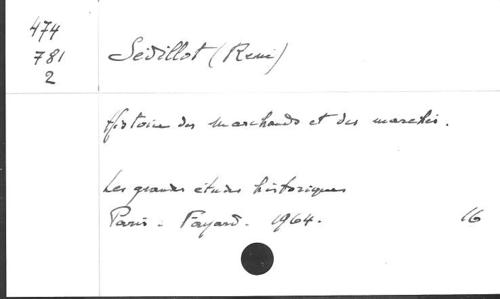 474
781
2
Sédillot (René)
Histoire des marchands et des marchés.
Les grandes études historiques
Paris - Fayard. 1964. 16